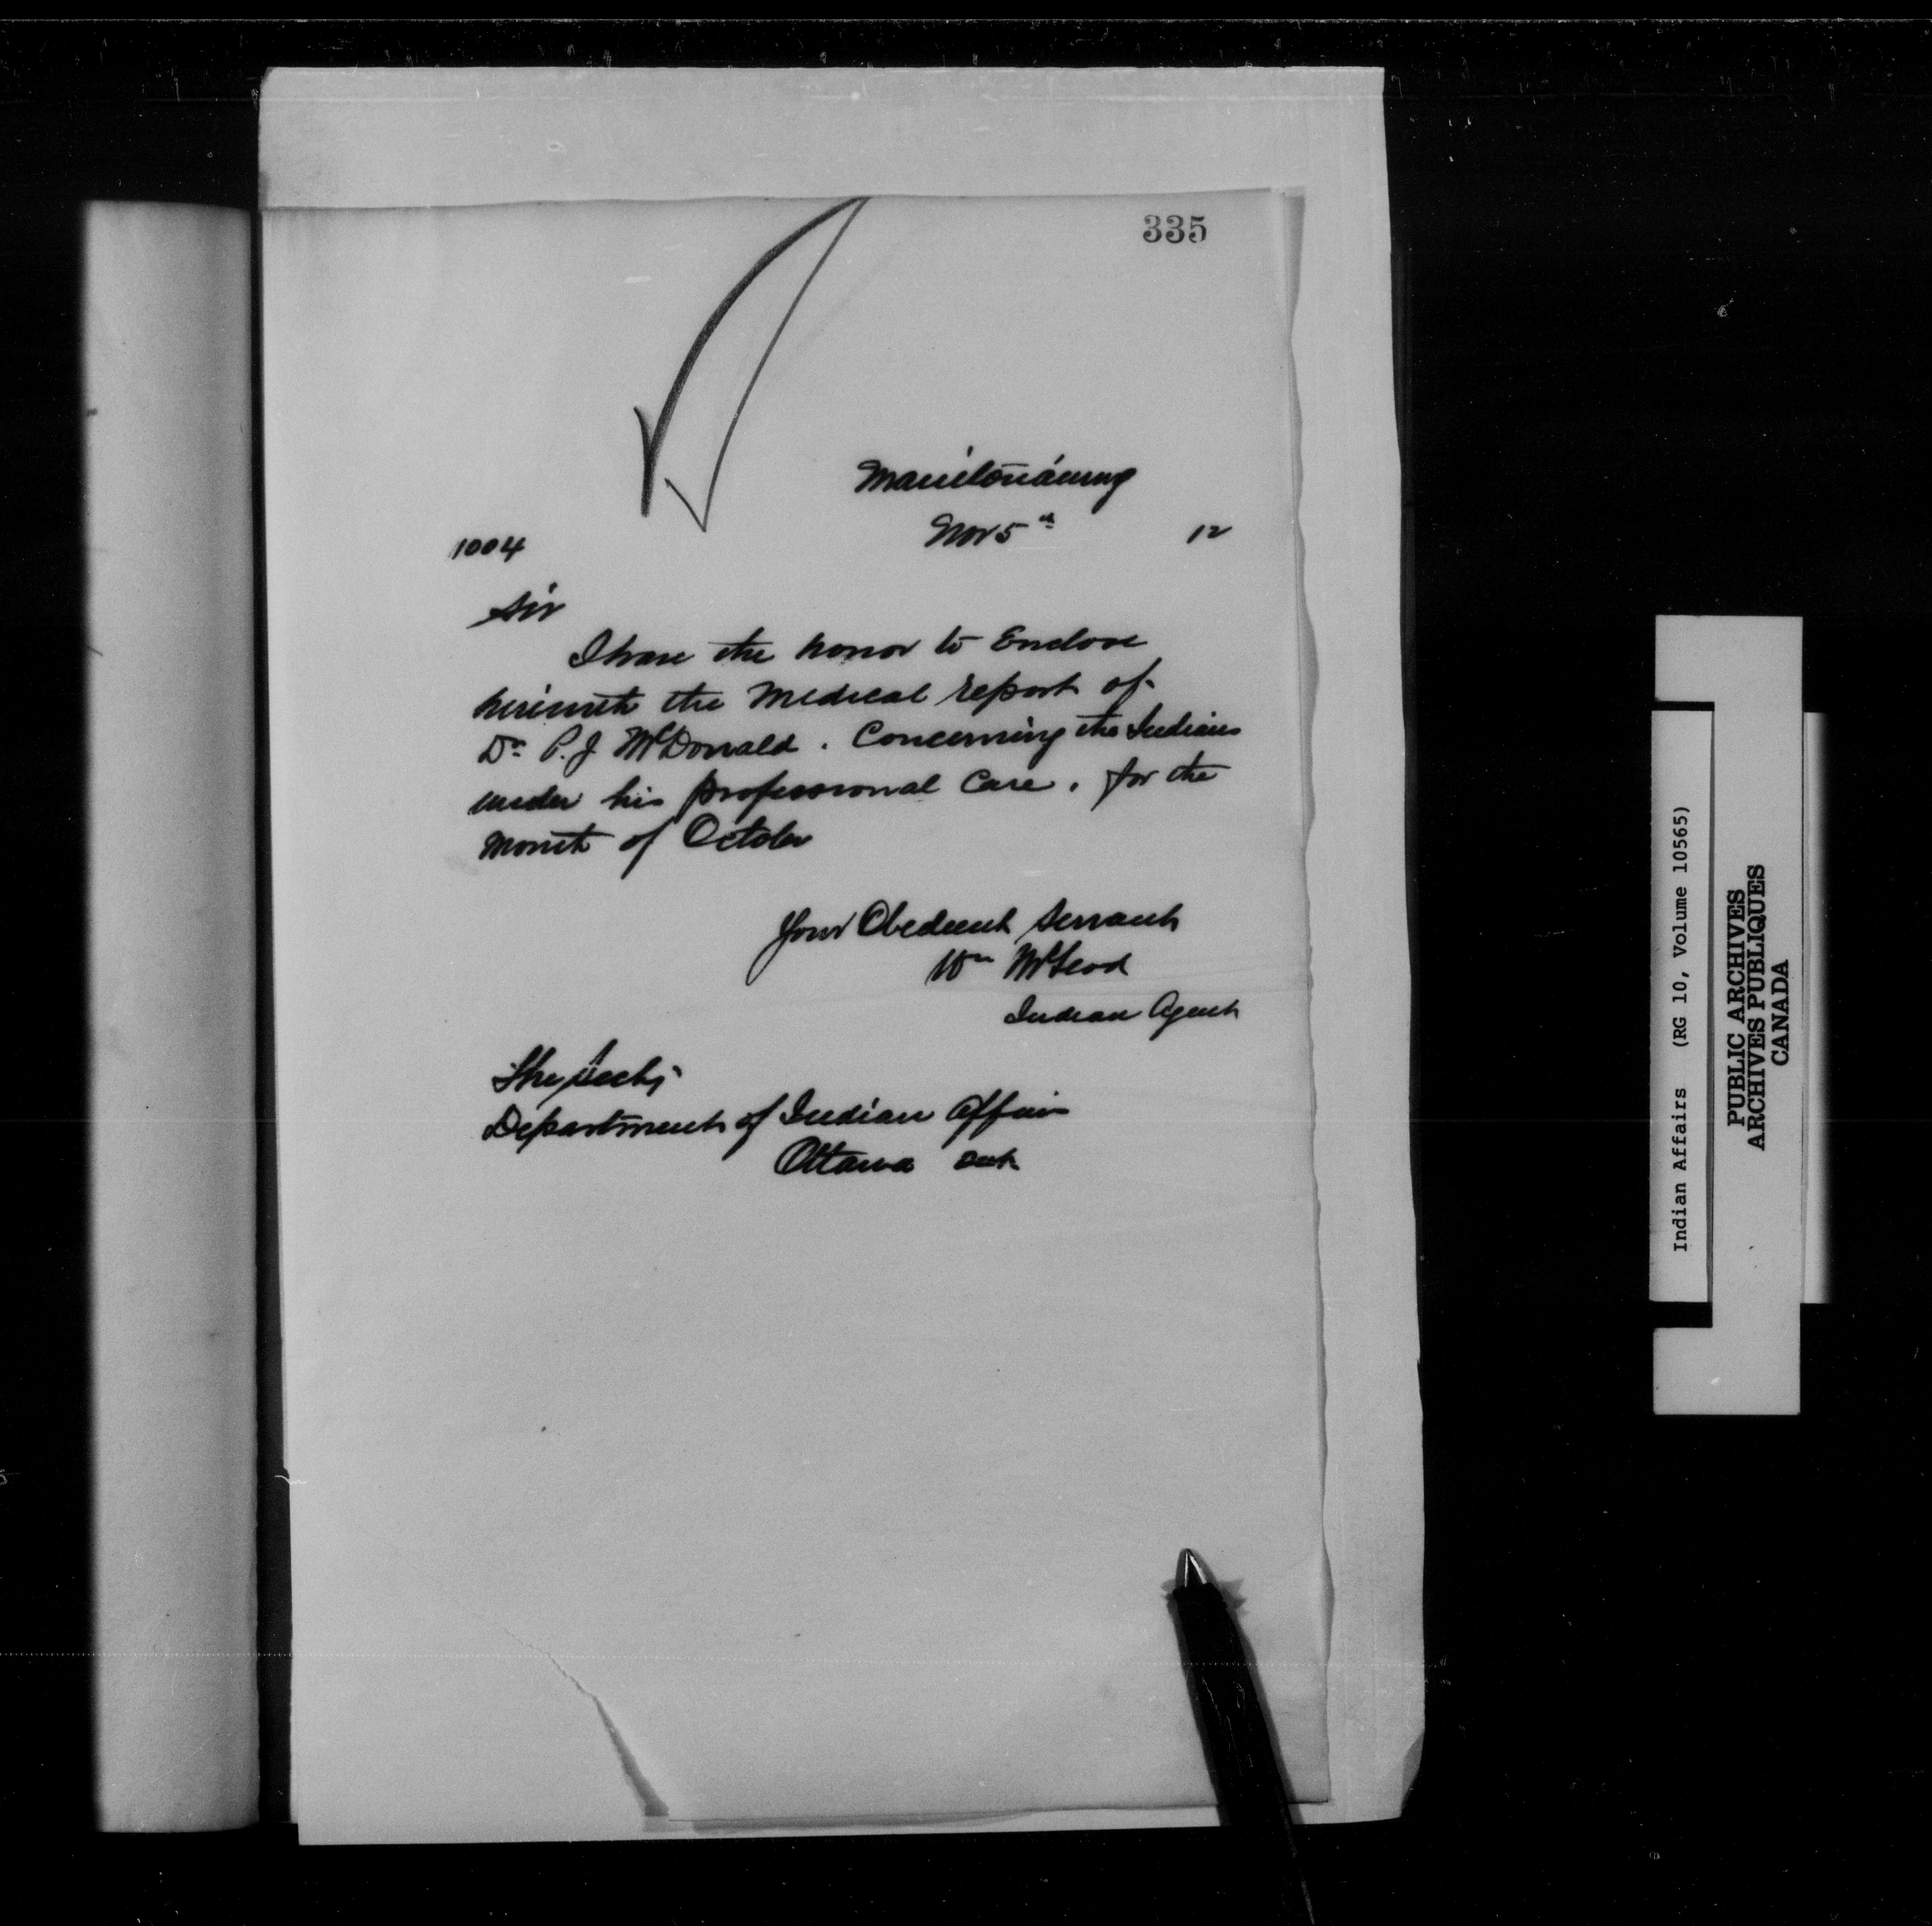 335
Manitowaning
Nov 5th 12
1004
Sir
I have the honor to Enclose
herewith the Medical report of
Dr P. J McDonald. Concerning the Indians
under his professional Care. for the
Month of October
Your Obedient Servant
Wm McLeod
Indian Agent
The Secty
Department of Indian Affairs
Ottawa Ont
Indian Affairs (RG 10, Volume 10565)
PUBLIC ARCHIVES
ARCHIVES PUBLIQUES
CANADA